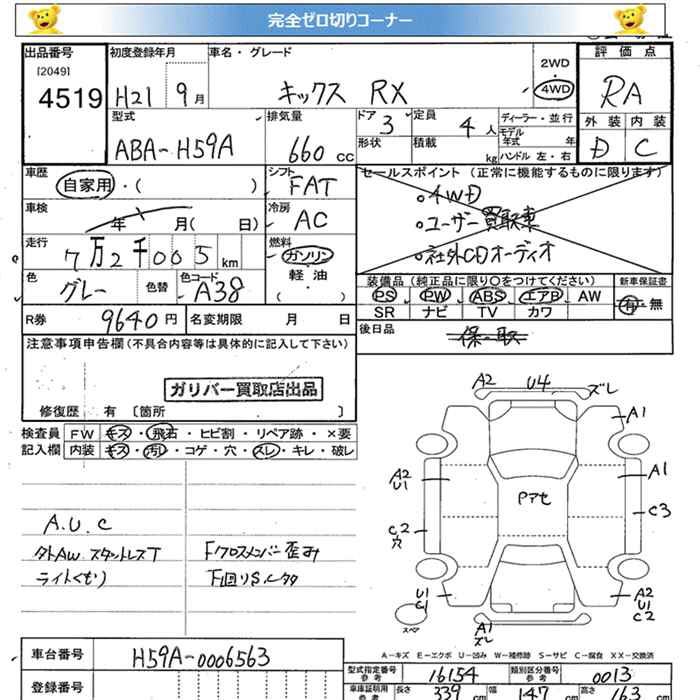 完全ゼロ切りコーナー
出品番号 初度登録年月 車名・グレード 評価点
[2049] 2WD
4519 H21 9月 キックス RX 4WD RA
型式 排気量 ドア 定員 ディーラー・並行 外装 内装
3 4人 モデル年式 年
ABA-H59A 660cc 形状 積載 kg ハンドル 左・右 D C
車歴 シフト セールスポイント (正常に機能するものに限ります)
自家用・( ) FAT ○4WD
車検 冷房 ○ユーザー買取車
年 月( 日) AC ○社外CDオーディオ
走行 燃料
7万2千005km ガソリン
色 色替 色コード 軽油 装備品(純正品に限り○をつけてください) 新車保証書
グレー A38 ( ) PS PW ABS エアB AW 有・無
SR ナビ TV カワ
R券 9640円 名変期限 月 日
後日品 保・取
注意事項申告欄(不具合内容等は具体的に記入して下さい)
ガリバー買取店出品
修復歴 有 〔箇所 〕
検査員 FW キズ・飛石・ヒビ割・リペア跡・×要
記入欄 内装 キズ・汚レ・コゲ・穴・スレ・キレ・破レ
A2 U4 ズレ
A1
A2 U1 A1
Pアセ
C3
C2 穴
A.U.C
外AW スタットレスT Fクロスメンバー歪み
ライトくもり 下回りSルタタ
U1 C1 A2 U1 C2
スペア A1 ズレ
A-キズ E-エクボ U-凹み W-補修跡 S-サビ C-腐食 XX-交換済
車台番号 H59A-0006563
型式指定番号 参考 16154 類別区分番号 参考 0013
登録番号
車庫証明用 参考 長さ 339 cm 幅 147 cm 高さ 163 cm